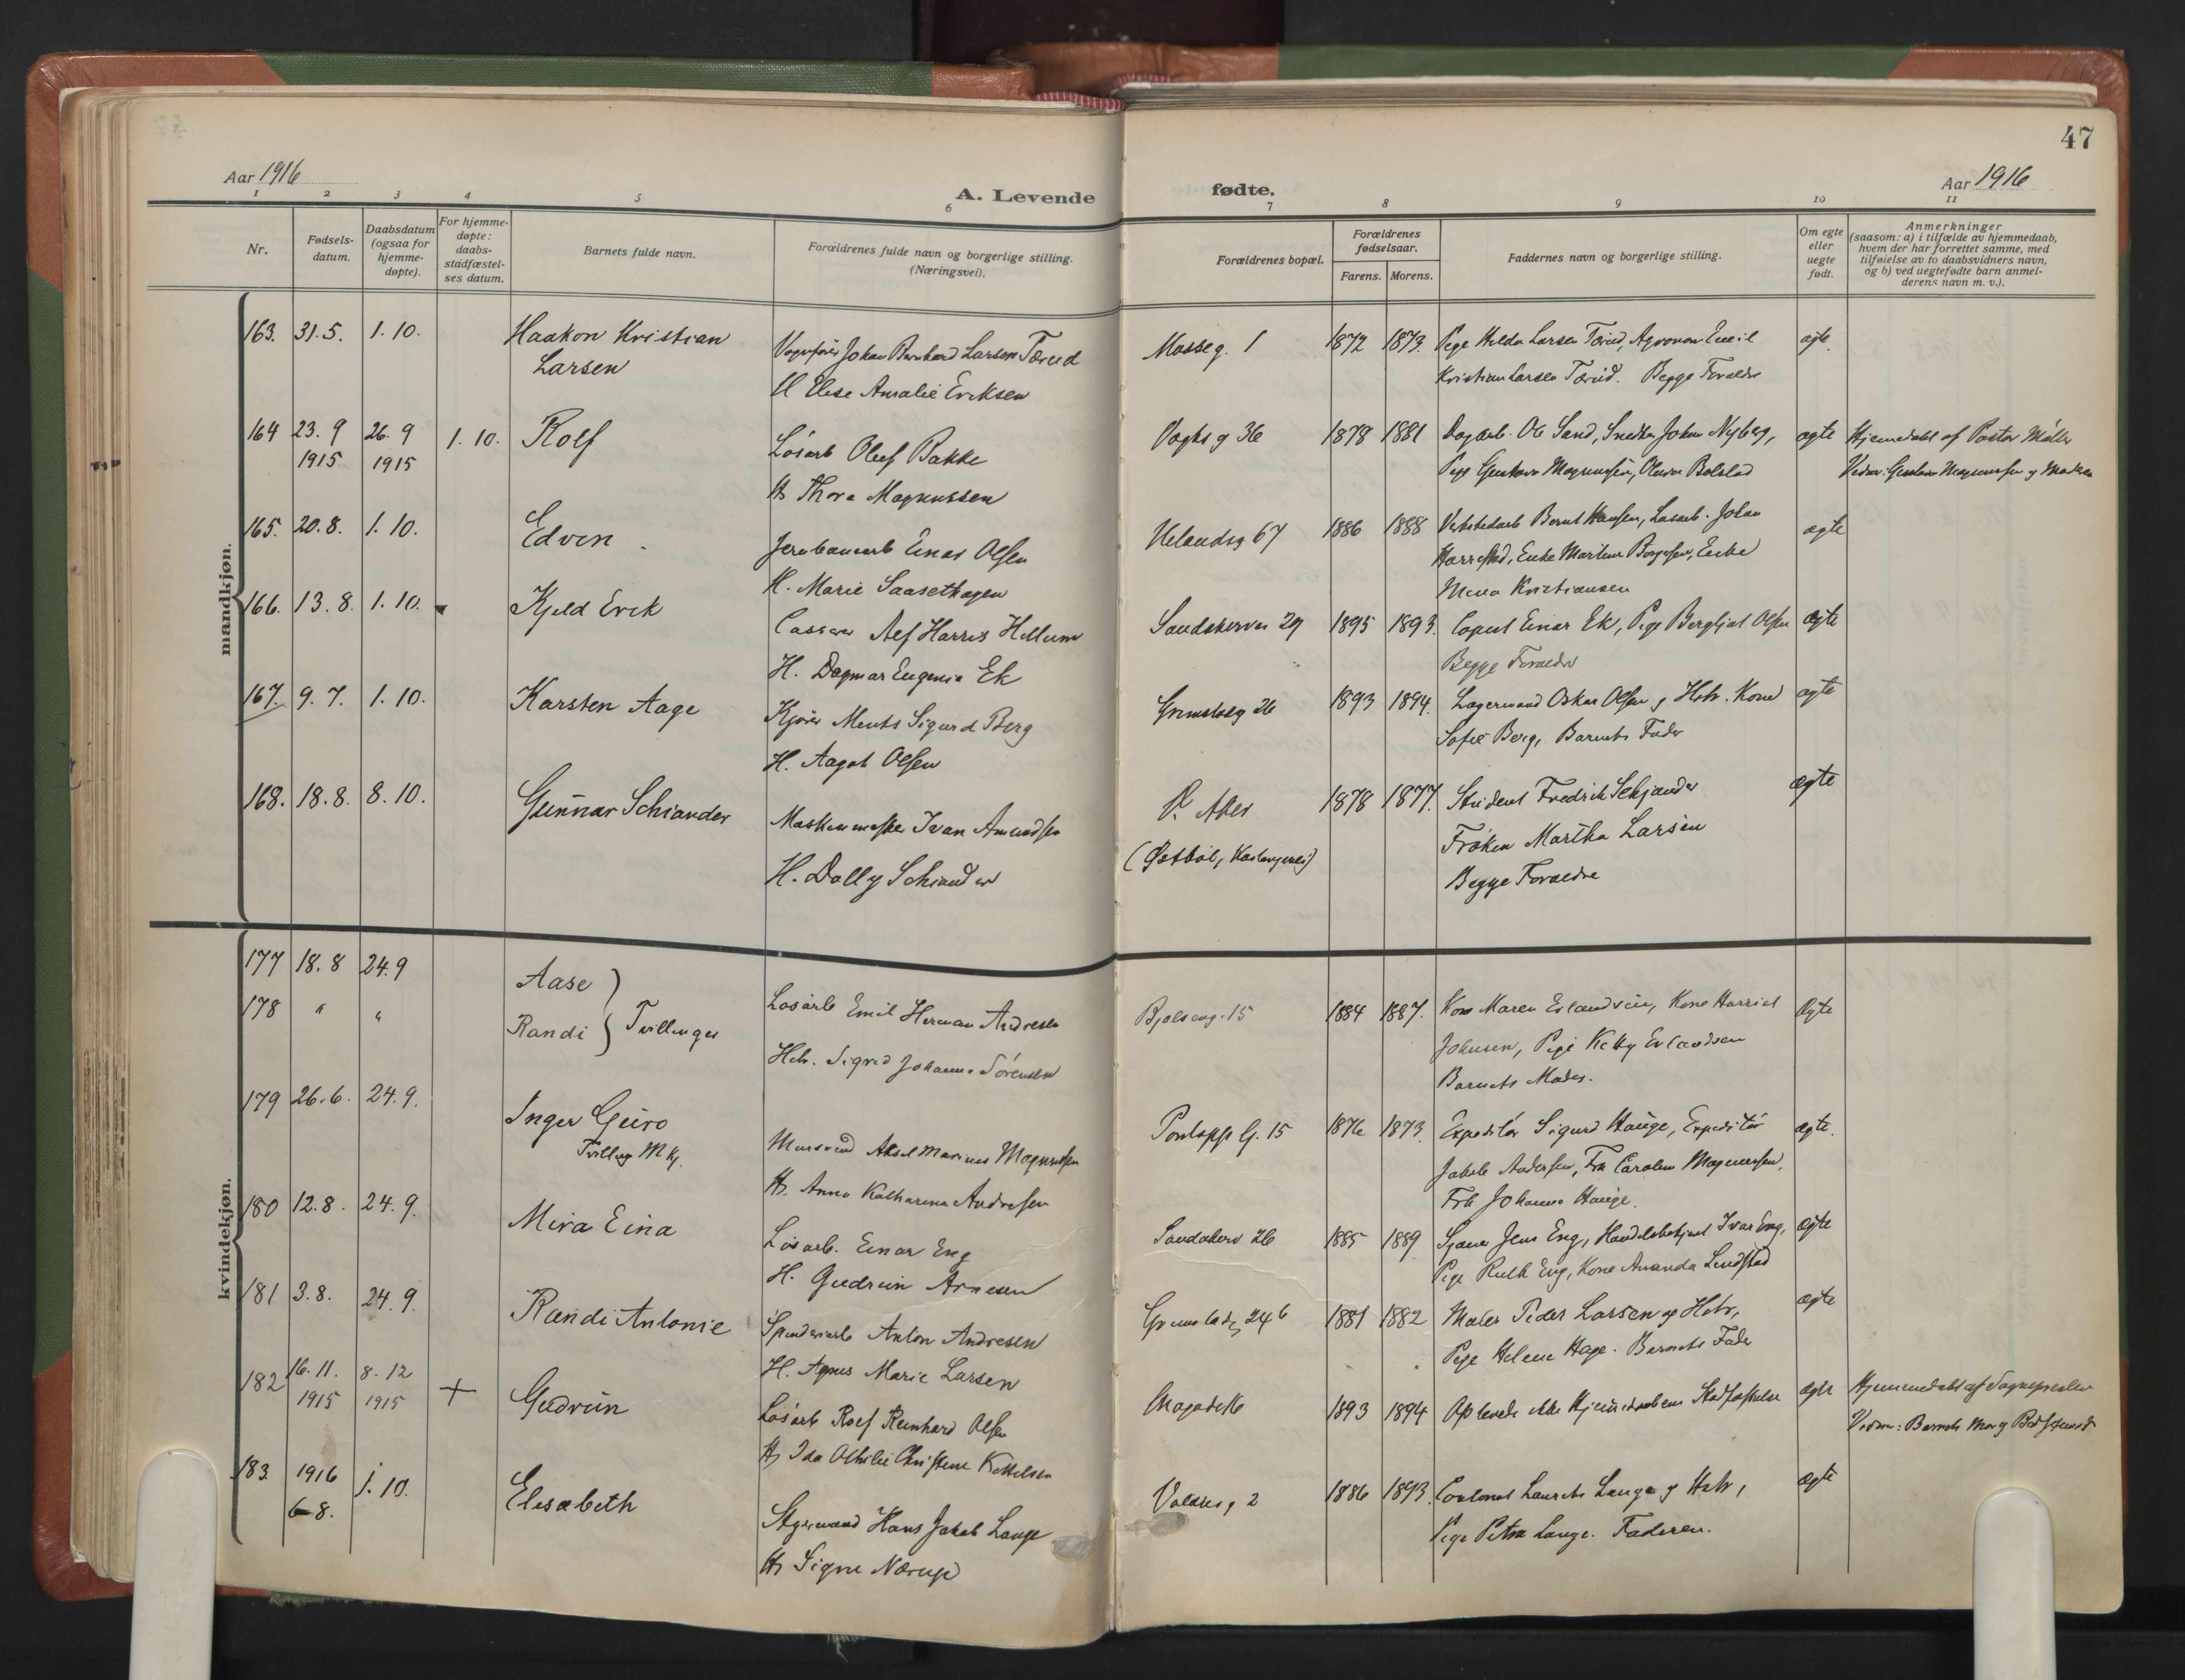 47
Aar 1916
A. Levende fødte.
Aar 1916
1 2 3 4 5 6 7 8 9 10 11
Nr.
Fødsels-
datum.
Daabsdatum
(ogsaa for
hjemme-
døpte).
For hjemme-
døpte:
daabs-
stadfæstel-
ses datum.
Barnets fulde navn.
Forældrenes fulde navn og borgerlige stilling.
(Næringsvei).
Forældrenes bopæl.
Forældrenes
fødselsaar.
Farens. Morens.
Faddernes navn og borgerlige stilling.
Om egte
eller
uegte
født.
Anmerkninger
(saasom: a) i tilfælde av hjemmedaab,
hvem der har forrettet samme, med
tilføielse av to daabsvidners navn,
og b) ved uegtefødte barn anmel-
derens navn m. v.).
mandkjøn.
163. 31.5. 1.10. Haakon Kristian
Larsen
Vognfører Johan Bernhard Larsen Tærud
H Elise Amalie Eriksen
Mosseg. 1
1872 1873. Pige Hilda Larsen Tærud, Agronom Emil
Kristian Larsen Tærud. Begge Forældre
ægte.
164 23.9 26.9 1.10. Rolf
1915 1915
Løsarb Oluf Bakke
H Thora Magnussen
Vogts g 36
1878 1881 Dagarb. Ole Sand, Snedker Johan Nyberg,
Pige Gustava Magnussen, Oluva Bolstad
ægte
Hjemmedøbt af Pastor Møller
165. 20.8. 1.10. Edvin
Jernbanearb Einar Olsen
H. Marie Saasethagen
Uelandsg 67
1886 1888 Verkstedarb Bernt Hansen, Løsarb. Johan
Harrestad, Enke Martine Borgersen, Enke
Mina Kristiansen
ægte
166. 13.8. 1.10. Kjeld Erik
Alf Harris Hellum
H. Dagmar Eugenia Ek
Sandakerven 29
1895 1893. Einar Ek, Pige Bergljot Olsen
Begge Forældre
ægte
167. 9.7. 1.10. Karsten Aage
Kjører Ments Sigurd Berg
H. Aagot Olsen
Grimstadg 26
1893 1894. Lagermand Oskar Olsen g Hstr. Kone
Sofie Berg, Barnets Fader
ægte
168. 18.8. 8.10. Gunnar Schiander
Maskinmester Ivan Amundsen
H. Dolly Schiander
V. Aker
1878 1877. Student Fredrik Schjander
Frøken Martha Larsen
Begge Forældre
ægte
kvindekjøn.
177 18.8 24.9 Aase
178 " " Randi } Tvillinger
Løsarb Emil Herman Andresen
Hstr. Sigrid Johanne Sørensen
Bjølseng. 15
1884 1887. Kone Maren Erlandsen, Kone Harriet
Johnsen, Pige Kitty Erlandsen
Barnets Moder.
ægte
179 26.6. 24.9. Inger Guro
Tvilling M Kj.
Aksel Marinus Magnussen
H. Anna Katharina Andresen
Pontoppi G. 15
1876 1873. Expeditør Sigurd Hauge, Expeditør
Jakob Andersen, Frk Caroline Magnussen,
Frk Johanne Hauge.
ægte.
180 12.8. 24.9. Mira Eina
Løsarb. Einar Eng
H. Gudrun Arnesen
Sandakerv 26
1885 1889 Jens Eng, Handelsbetjent Ivar Eng,
Pige Ruth Eng, Kone Amanda Lindstad
ægte
181 3.8. 24.9. Randi Antonie
Spinderiarb Anton Andresen
H. Agnes Marie Larsen
Grimstadg 24 b
1881 1882 Maler Peder Larsen og Hstr,
Pige Helene Hage. Barnets Fader
ægte
182 16.11. 8.12 + Gudrun
1915 1915
Løsarb Rolf Reinhard Olsen
H. Ida Othilie Christine Kittelsen
1893 1894 Oplevede ikke Hjemmedaabens Stadfæstelse
ægte
Hjemmedøbt af Sognepresten
183. 1916 1.10. Elisabeth
6-8.
Styrmand Hans Jakob Lange
H. Signe Nærup
Valdresg 2
1886 1893. Laurits Lange g Hstr,
Pige Petra Lange. Faderen.
ægte